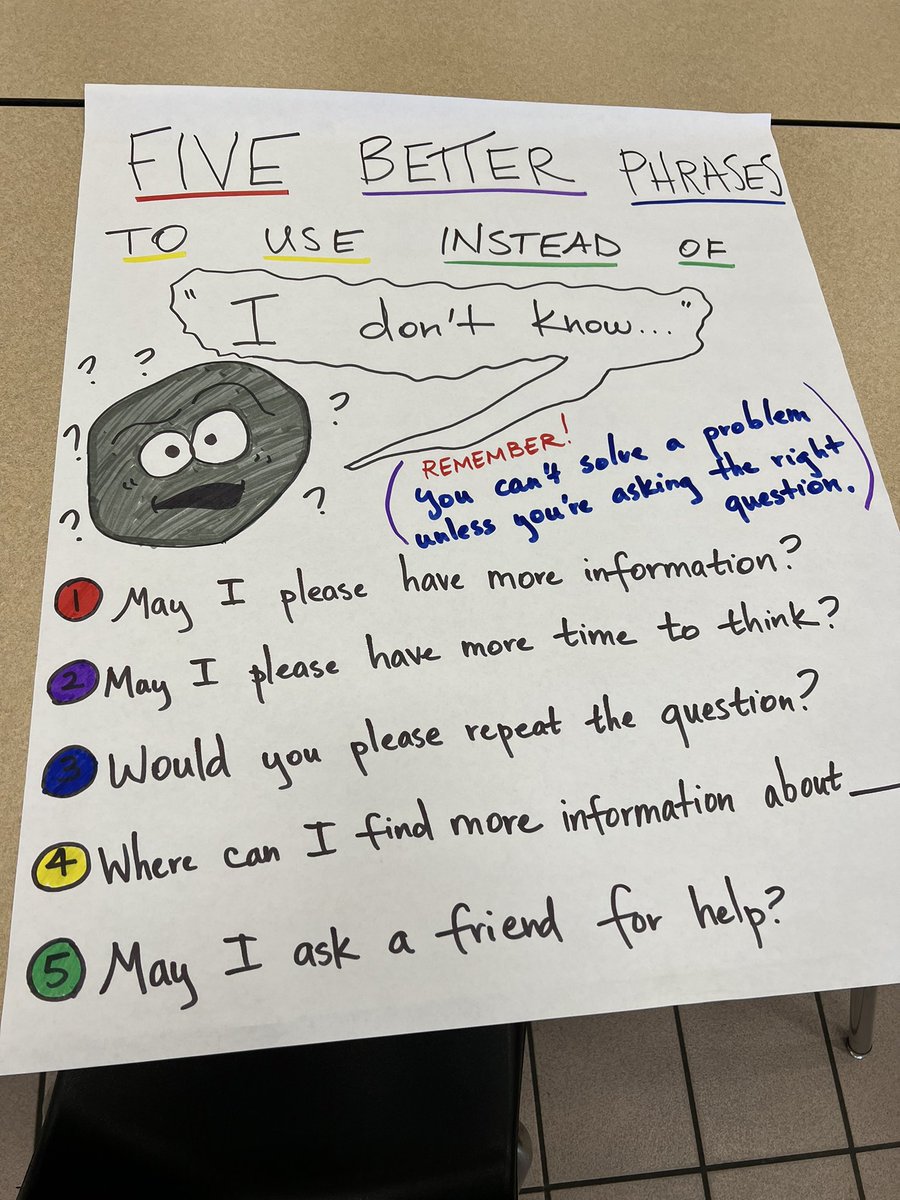 FIVE BETTER PHRASES
TO USE INSTEAD OF
"I don't know..."
? ? ? ? ? ?
REMEMBER!
you can't solve a problem
unless you're asking the right
question.
1 May I please have more information?
2 May I please have more time to think?
3 Would you please repeat the question?
4 Where can I find more information about ___
5 May I ask a friend for help?